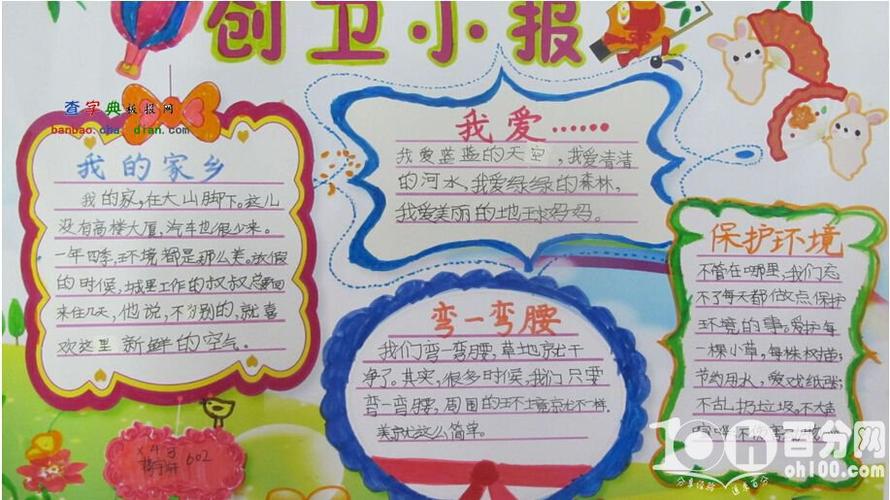 创卫小报
查字典板报网
我的家乡
我的家,在大山脚下。这儿
没有高楼大厦,汽车也很少来。
一年四季,环境都是那么美。放假
的时候,城里工作的叔叔总要回
来住几天,他说,不为别的,就喜
欢这里新鲜的空气。
我爱……
我爱蓝蓝的天空,我爱清清
的河水,我爱绿绿的森林,
我爱美丽的地球妈妈。
弯一弯腰
我们弯一弯腰,草地就干
净了。其实,很多时候,我们只要
弯一弯腰,周围的环境就不一样。
美就这么简单。
保护环境
不管在哪里,我们忘
不了每天都做点保护
环境的事。爱护每
一棵小草,每株树苗;
节约用水,爱惜纸张;
不乱扔垃圾。不大声
602
百分网
oh100.com
分享经验